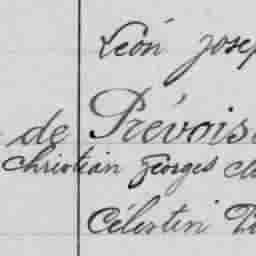 Léon Josep
de Prévois
Christian Georges
Célestin